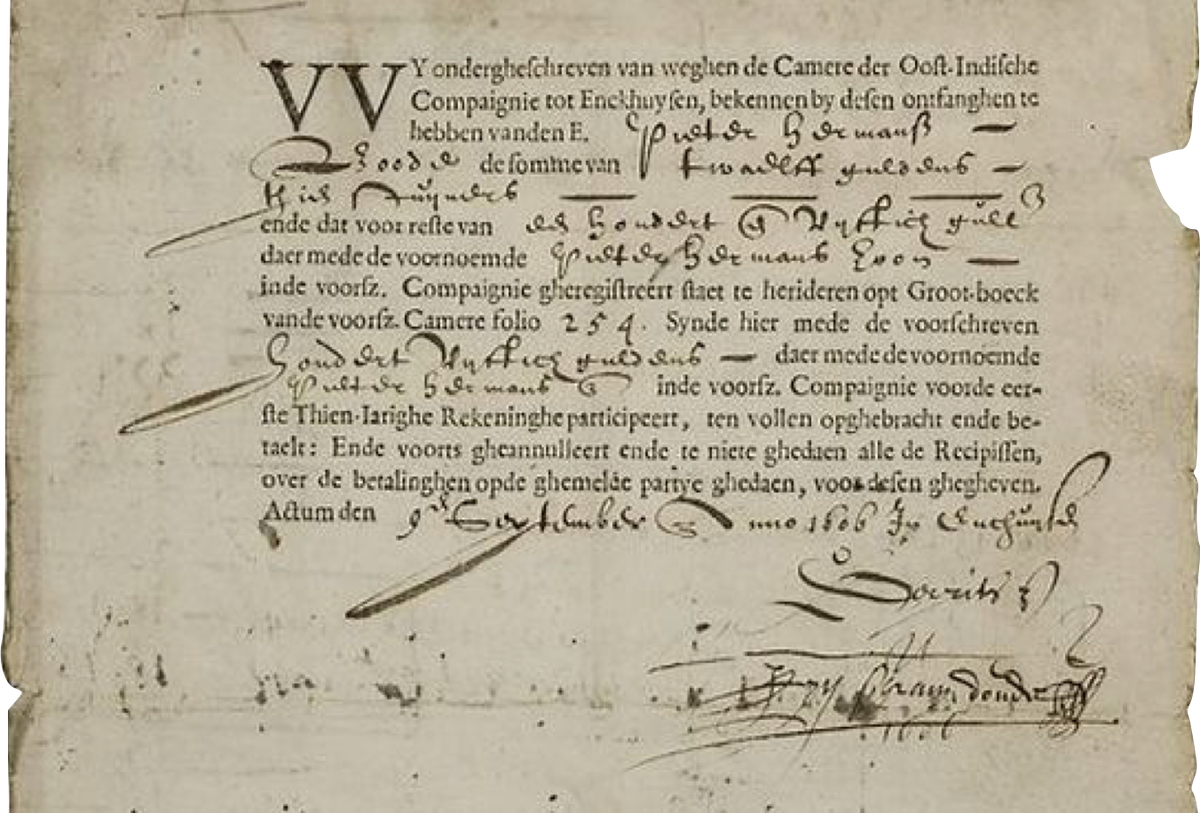 VVY ondergheschreven van weghen de Camere der Oost-Indische
Compaignie tot Enckhuysen, bekennen by desen ontfanghen te
hebben vanden E. Pieter Hermansz
de somme van twaelff guldens
thien stuyvers
ende dat voor reste van een hondert en vyftich guld
daer mede de voornoemde Pieter Hermans zoon
inde voorsz. Compaignie gheregistreert staet te herideren opt Groot-boeck
vande voorsz. Camere folio 254. Synde hier mede de voorschreven
hondert vyftich guldens daer mede de voornoemde
Pieter Hermans inde voorsz. Compaignie voorde eer-
ste Thien-Iarighe Rekeninghe participeert, ten vollen opghebracht ende be-
taelt: Ende voorts gheannulleert ende te niete ghedaen alle de Recipissen,
over de betalinghen opde ghemelde partye ghedaen, voor desen ghegheven.
Actum den 9en September Anno 1606 In Enchuysen
1606